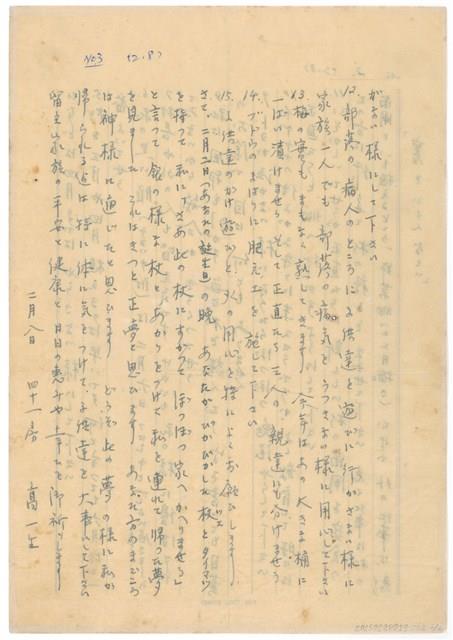 No3 (2.8)
がない様にして下さい
12.部落の病人のところに子供達を遊びに行かさない様に
家族一人でも部落の病気をうつさない様に用心して下さい
13.梅の実もまもなく熟してきます 今年はあの大きな桶に
一ぱい漬けませう そして正直たち三人の親達にも分けませう
14.ブドウのまはりに肥え土を施して下さい
15.子供達のかけ遊びと火の用心を特によくお願ひします
さて、二月二日(あなたの誕生日)の晩 あなたがぴかぴかした杖とタイマツ
を持って私に「さあ此の杖にすがって ぼつぼつ家へかへりませう」
と言って銀の様な杖とあかりをつけて私を連れて帰った夢
を見ました これはきっと正夢と思ひます あなた方のまごころ
は神様に通じたと思ひます どうぞ此の夢の様に私が
帰られる迄は特に体に気をつけて子供達を大事にして下さい
留主家族の平安と健康と日日の恵み
御祈りします
二月八日 四十一房 高一生